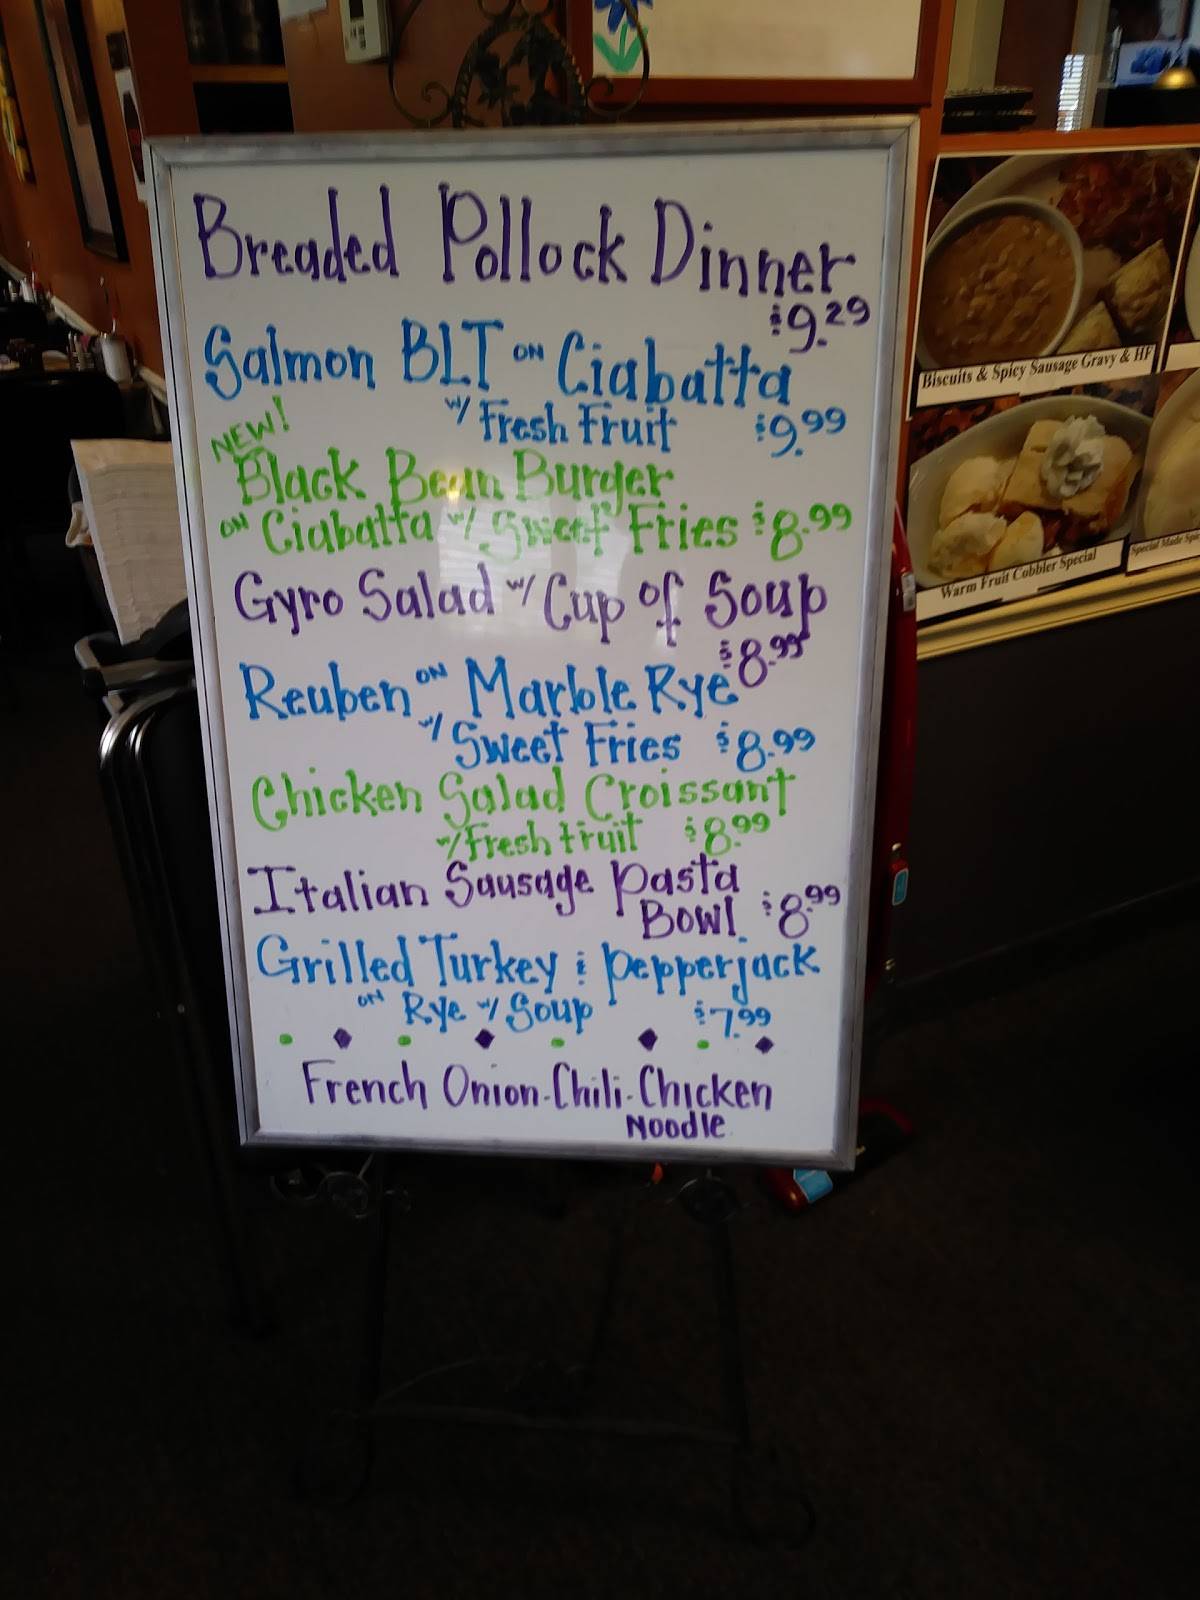 Breaded Pollock Dinner
$9.29
Salmon BLT on Ciabatta
w/ Fresh Fruit $9.99
NEW!
Black Bean Burger
on Ciabatta w/ Sweet Fries $8.99
Gyro Salad w/ Cup of Soup
$8.99
Reuben on Marble Rye
w/ Sweet Fries $8.99
Chicken Salad Croissant
w/ Fresh Fruit $8.99
Italian Sausage Pasta
Bowl $8.99
Grilled Turkey & Pepperjack
on Rye w/ Soup $7.99
French Onion-Chili-Chicken
Noodle
Biscuits & Spicy Sausage Gravy & HF
Warm Fruit Cobbler Special
Special Made